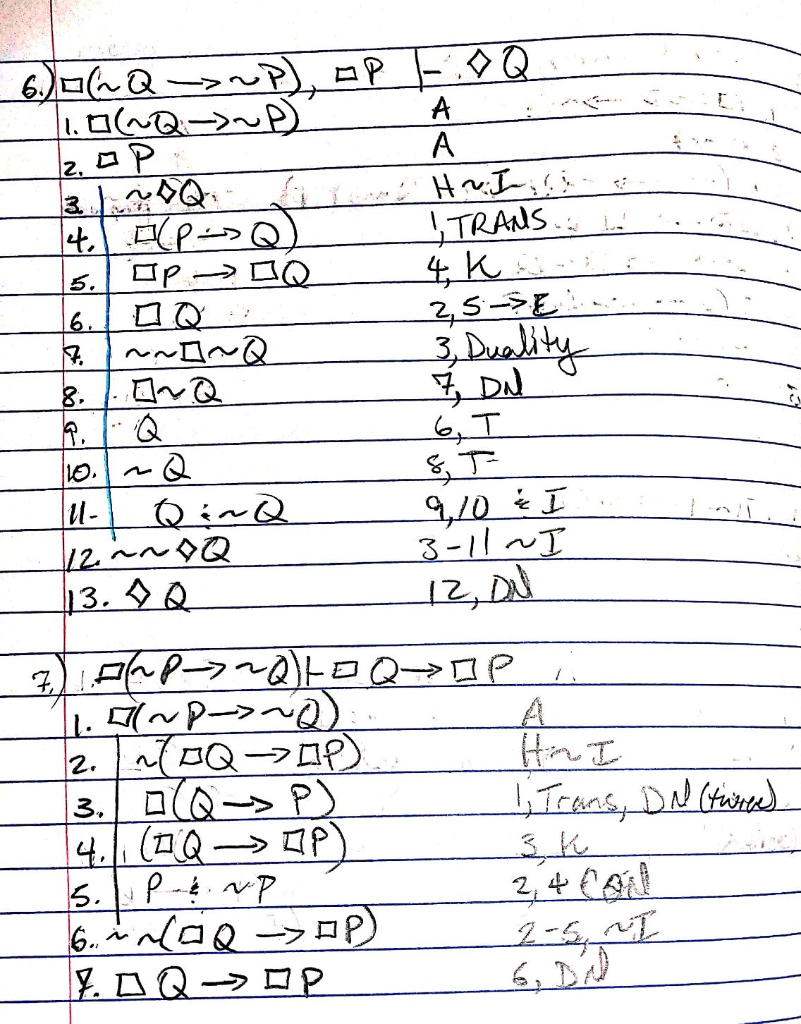 6.) □(~Q → ~P), □P ⊢ ◇Q
1. □(~Q → ~P) A
2. □P A
3. ~◇Q H~I
4. □(P → Q) 1, TRANS
5. □P → □Q 4, K
6. □Q 2,5 →E
7. ~~□~Q 3, Duality
8. □~Q 7, DN
9. Q 6, T
10. ~Q 8, T
11. Q & ~Q 9,10 & I
12. ~~◇Q 3-11 ~I
13. ◇Q 12, DN
7.) 1. □(~P → ~Q) ⊢ □Q → □P
1. □(~P → ~Q) A
2. ~(□Q → □P) H~I
3. □(Q → P) 1, Trans, DN (twice)
4. (□Q → □P) 3, K
5. P & ~P 2,4 CON
6. ~~(□Q → □P) 2-5, ~I
7. □Q → □P 6, DN